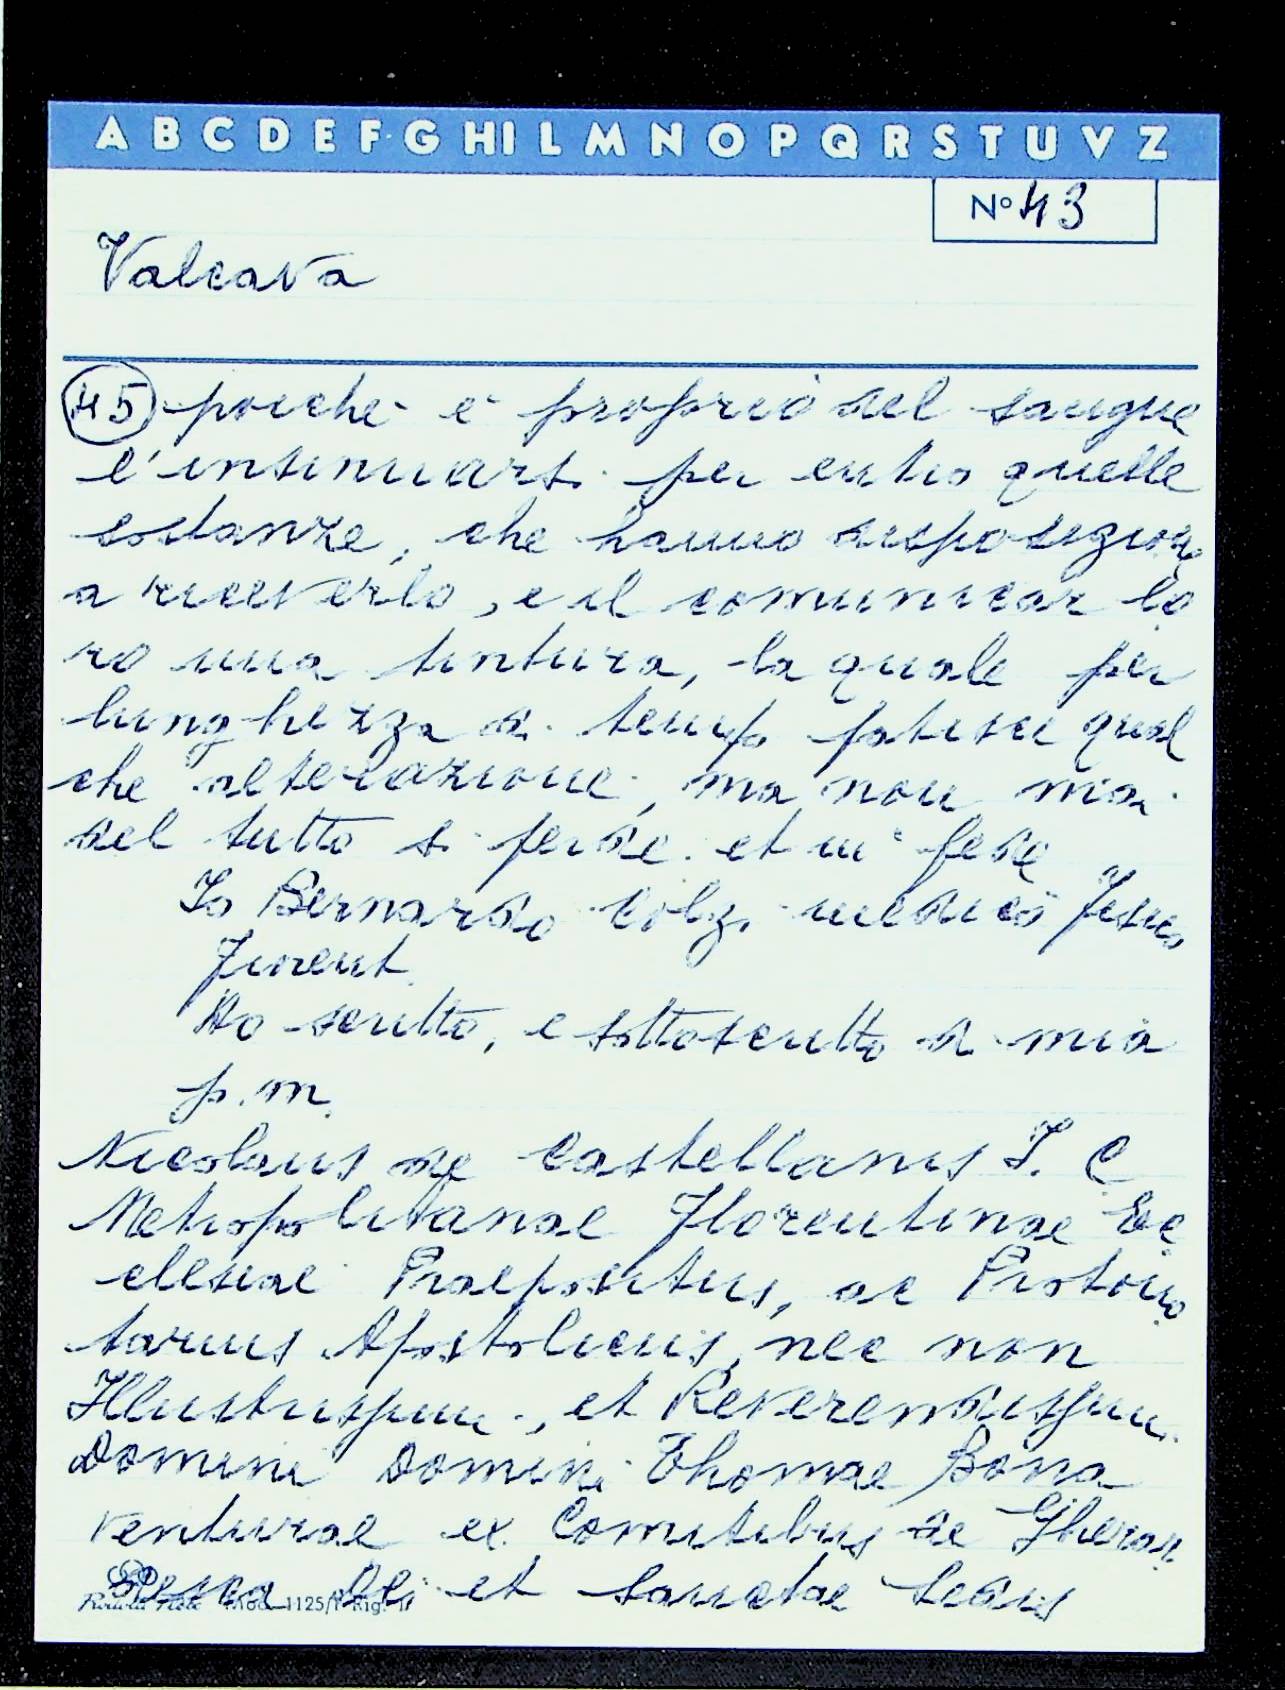 A B C D E F G H I L M N O P Q R S T U V Z
N° 43
Valcava
45 poiché è proprio del sangue
l'insinuarsi per entro quelle
sostanze, che hanno disposizion
a riceverlo, e il comunicar lo
ro una tintura, la quale per
lunghezza di tempo patisce qual
che alterazione, ma non mai
del tutto si perde. et in fede
Io Bernardo medico
Fiorent.
Ho scritto, e sottoscritto di mia
p. m.
Nicolaus de Castellanis I. C
Metropolitanae Florentinae Ec
clesiae Praepositus, ac Protono
tarius Apostolicus, nec non
Illustrissimi, et Reverendissimi
Domini Domini Thomae Bona
venturae ex Comitibus de Gherar
desca Dei et Sanctae Sedis
1125/